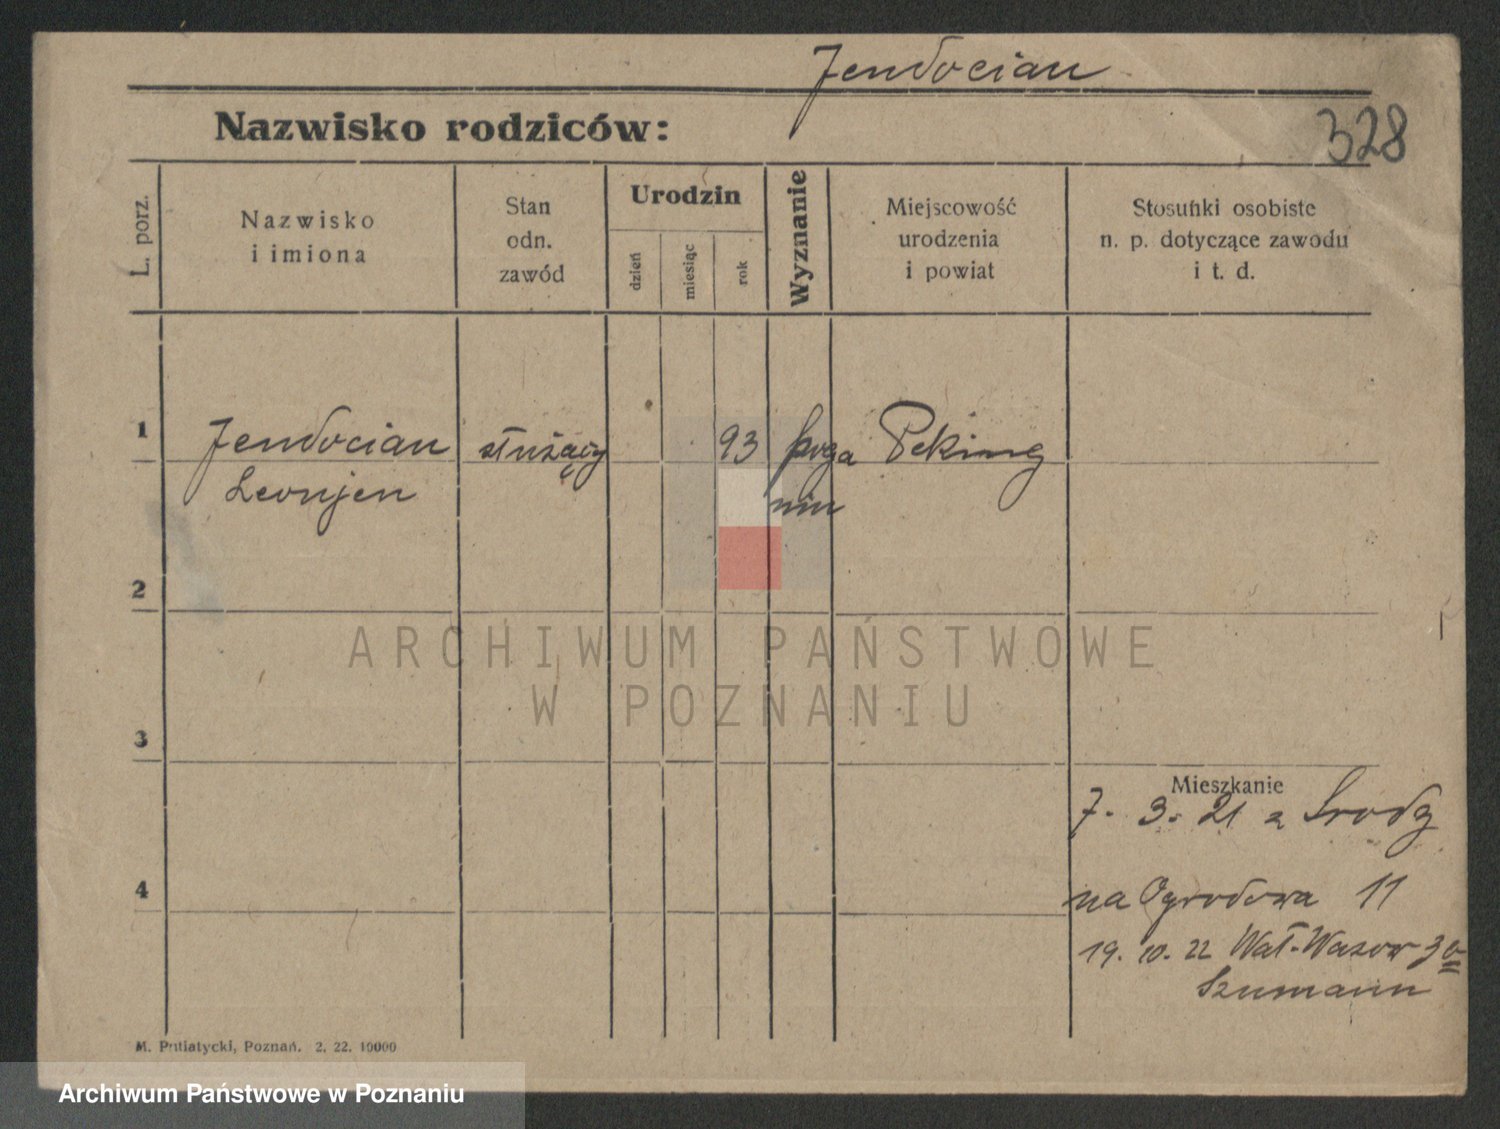 Jendocian
Nazwisko rodziców:
328
L. porz.
Nazwisko
i imiona
Stan
odn.
zawód
Urodzin
dzień
miesiąc
rok
Wyznanie
Miejscowość
urodzenia
i powiat
Stosunki osobiste
n. p. dotyczące zawodu
i t. d.
1
Jendocian służący 93 poga Peking
Leonjen nin
2
ARCHIWUM PAŃSTWOWE
W POZNANIU
3
Mieszkanie
7. 3. 21 z Środy
4
na Ogrodowa 11
19. 10. 22 Wał-Wazow
Szumann
M. Putiatycki, Poznań. 2. 22. 10000
Archiwum Państwowe w Poznaniu